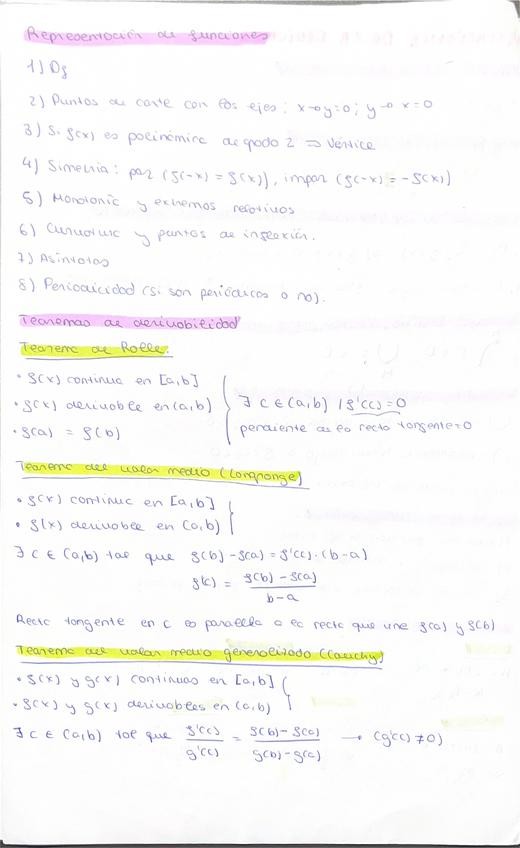 Representación de funciones
1) Df
2) Puntos de corte con los ejes: x→y=0; y→x=0
3) Si f(x) es polinómica de grado 2 ⇒ Vértice
4) Simetría: par (f(-x) = f(x)), impar (f(-x) = -f(x))
5) Monotonía y extremos relativos
6) Curvatura y puntos de inflexión.
7) Asíntotas
8) Periodicidad (si son periódicas o no).
Teoremas de derivabilidad
Teorema de Rolle.
• f(x) continua en [a,b]
• f(x) derivable en (a,b) } ∃ c ∈ (a,b) / f'(c) = 0
• f(a) = f(b) pendiente de la recta tangente = 0
Teorema del valor medio (Langrange)
• f(x) continua en [a,b]
• f(x) derivable en (a,b) }
∃ c ∈ (a,b) tal que f(b) - f(a) = f'(c)·(b-a)
f'(c) = (f(b) - f(a))/(b-a)
Recta tangente en c es paralela a la recta que une f(a) y f(b)
Teorema del valor medio generalizado (Cauchy)
• f(x) y g(x) continuas en [a,b]
• f(x) y g(x) derivables en (a,b) }
∃ c ∈ (a,b) tal que f'(c)/g'(c) = (f(b) - f(a))/(g(b) - g(a)) → (g'(c) ≠ 0)